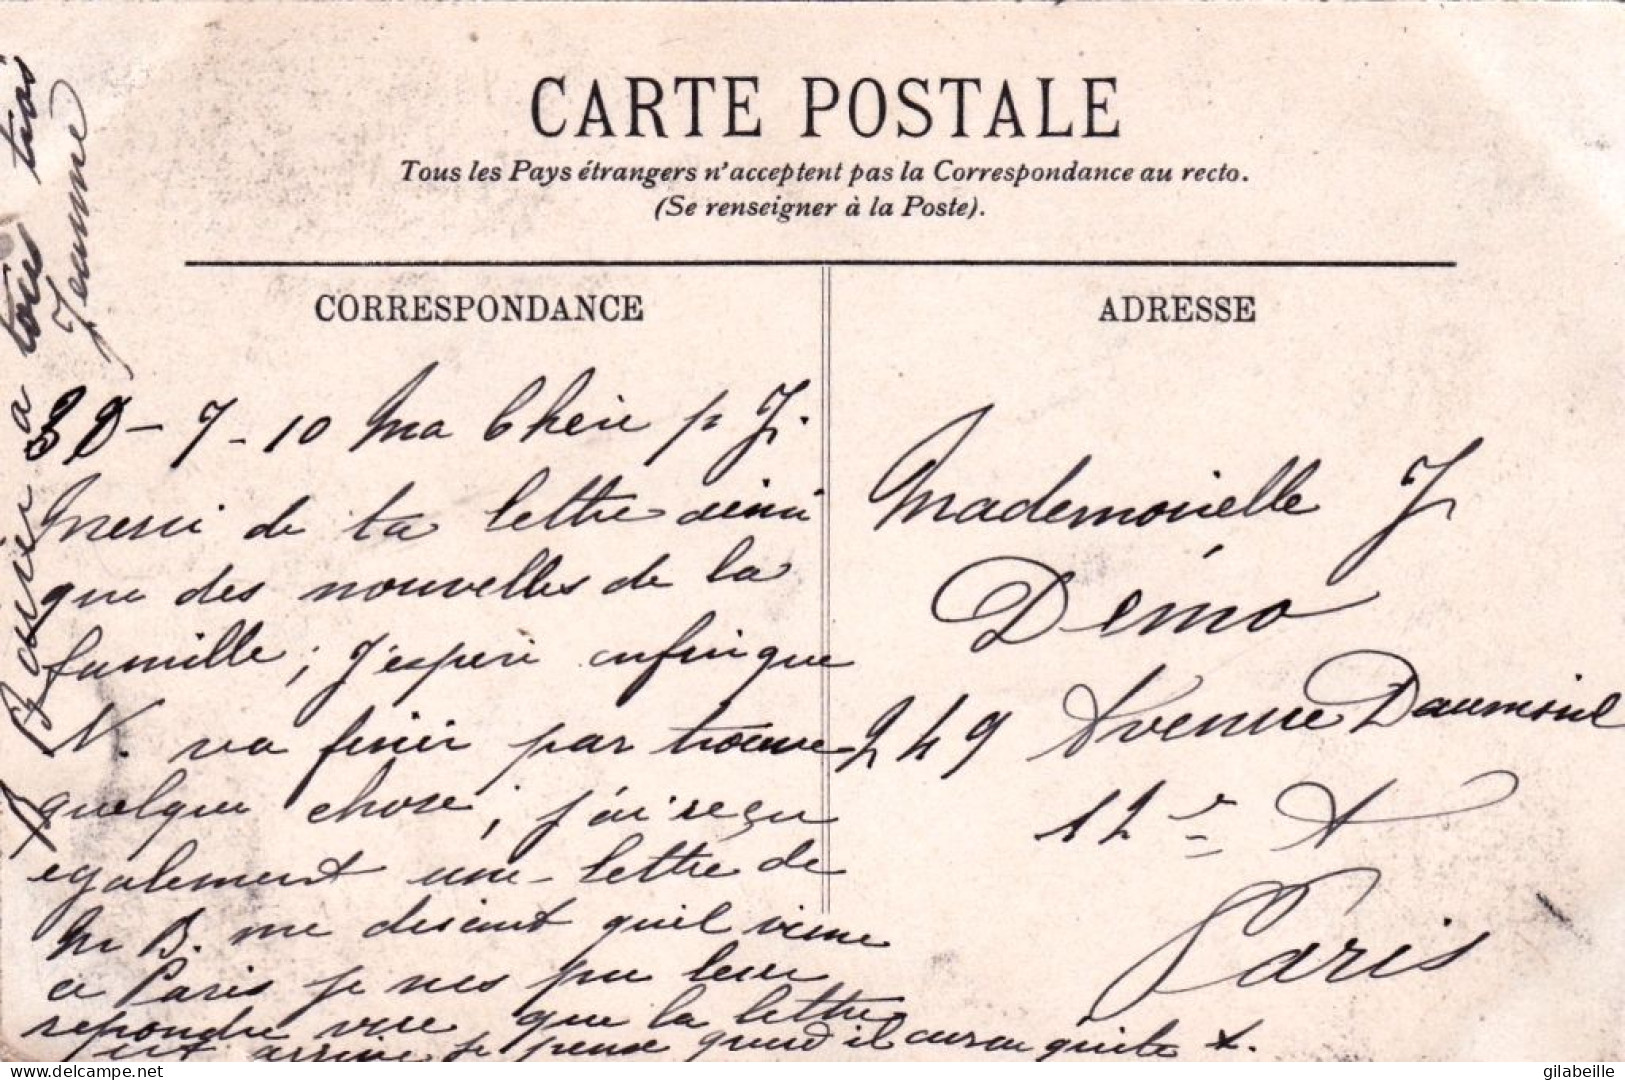 CARTE POSTALE
Tous les Pays étrangers n'acceptent pas la Correspondance au recto.
(Se renseigner à la Poste).
CORRESPONDANCE
ADRESSE
7 - 10 Ma Cherie p J.
Merci de ta lettre ainsi
que des nouvelles de la
famille ; J'espere enfin que
N. va finir par trouver
quelque chose ; j'ai reçu
egalement une lettre de
M B. me disant qu'il viene
a Paris je nes pu leur
repondre vue que la lettre
est arrive je pense quand il aura quite x.
Baisers a tous trois
Jeanne
Mademoiselle J
Démo
249 Avenue Daumenil
12e A
Paris
delcampe.net
gilabeille